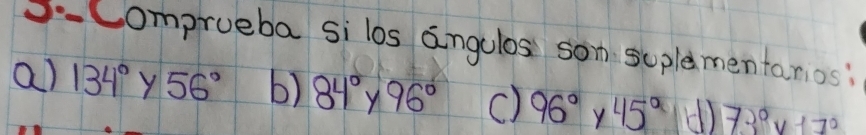 3.- Comprueba si los ángulos son suplementarios:
a) 134° y 56° b) 84° y 96° c) 96° y 45° d) 73° y 17°